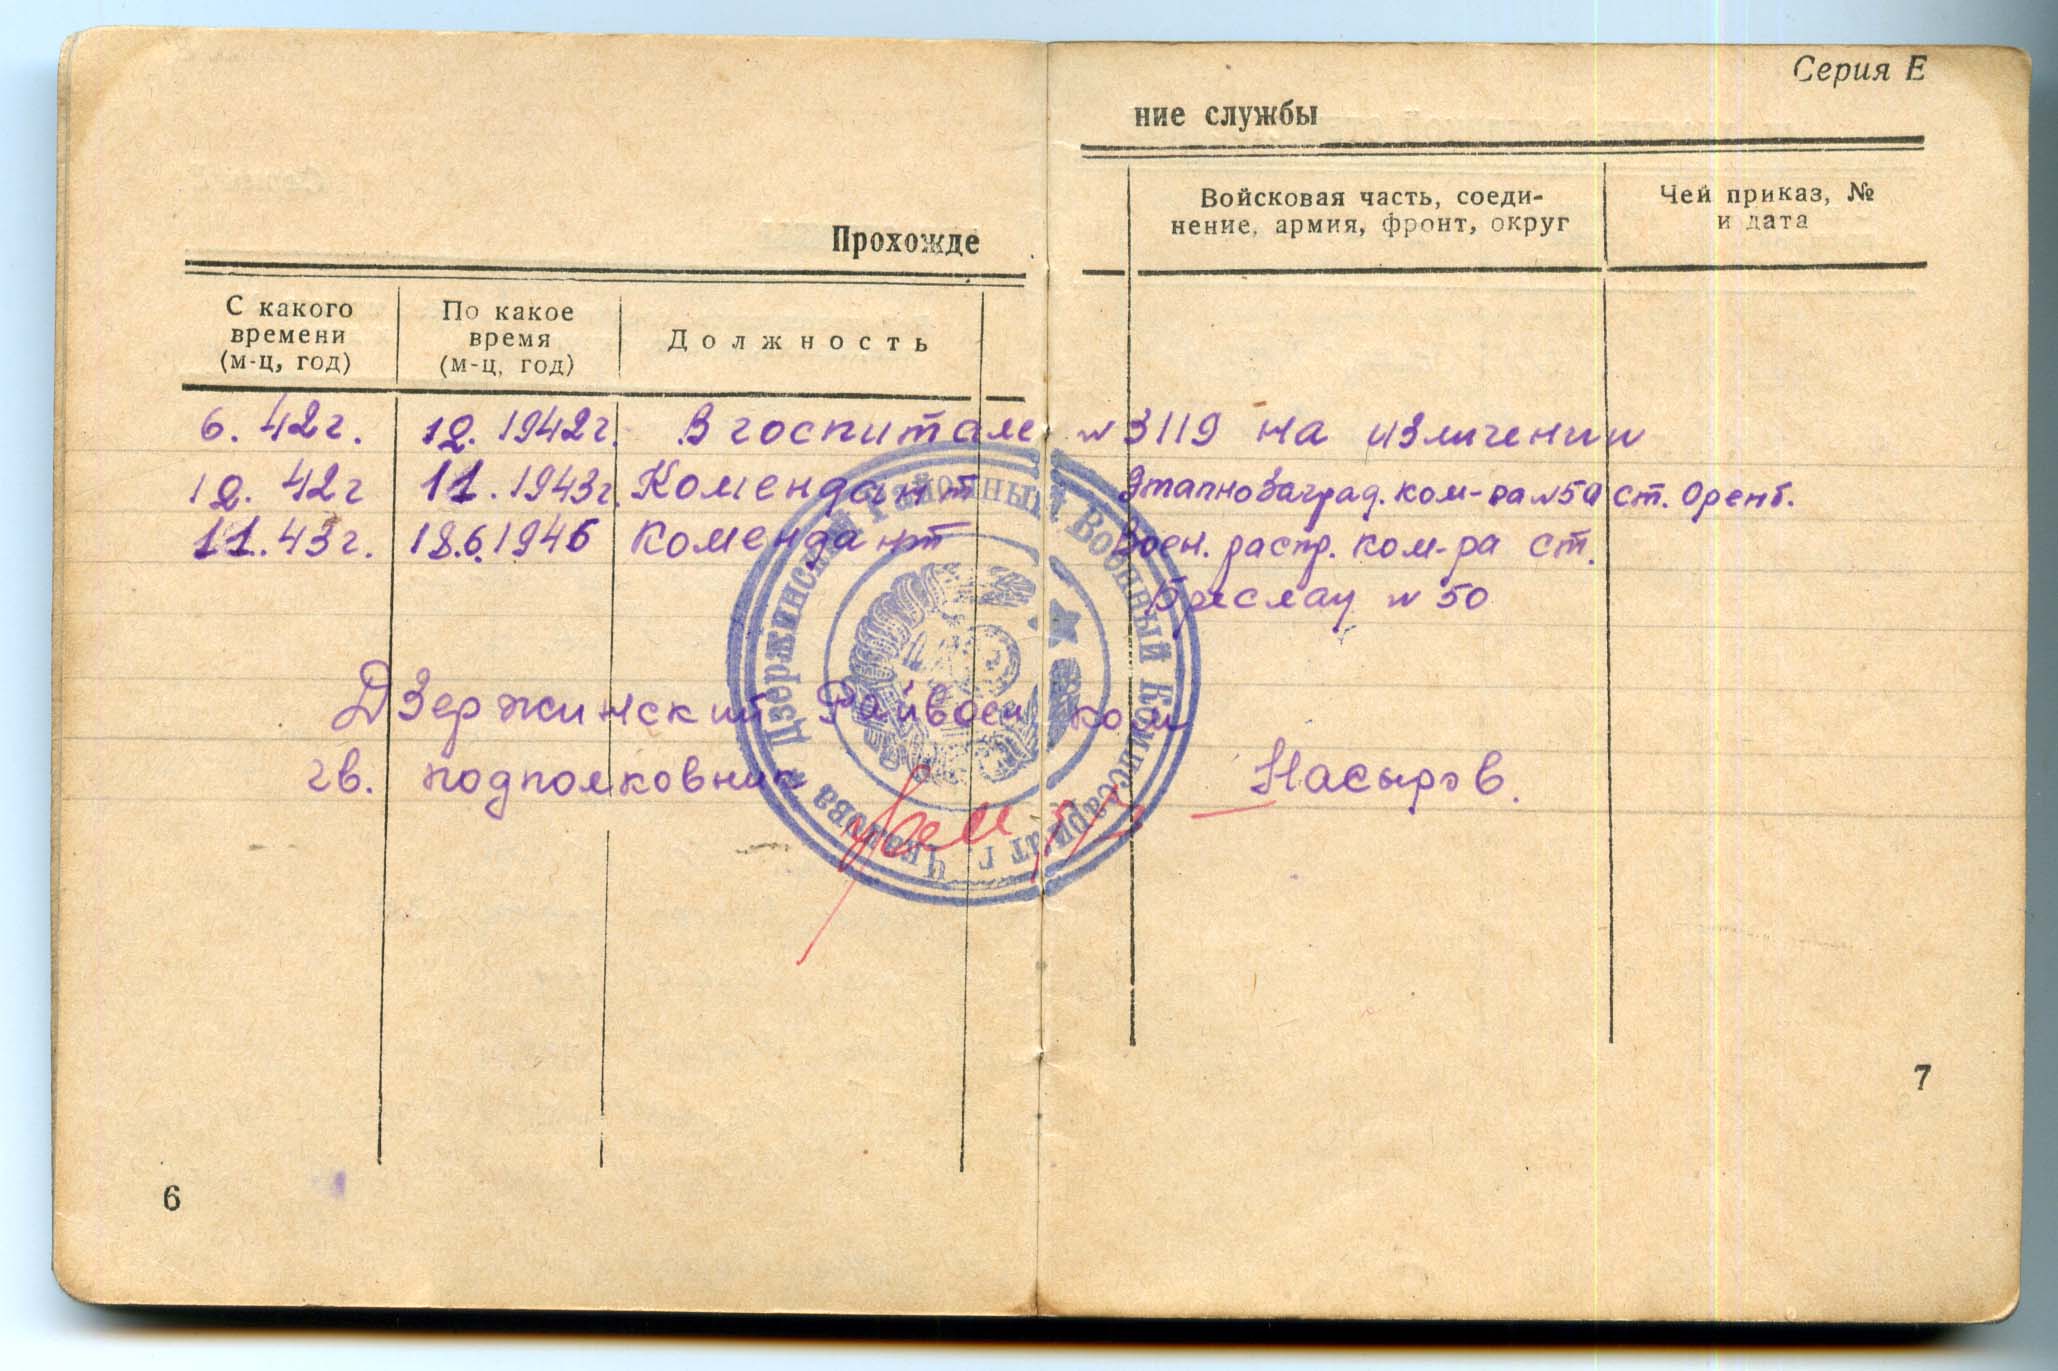 Прохожде
С какого времени (м-ц, год)
По какое время (м-ц, год)
Должность
Серия Е
ние службы
Войсковая часть, соеди-
нение, армия, фронт, округ
Чей приказ, №
и дата
6. 42г. 12. 1942г. В госпитале №3119 на изличении
12. 42г 11. 1943г. Комендант Этапнозаград. ком-ра №50 ст. Оренб.
11. 43г. 18.6.1946 Комендант Воен. распр. ком-ра ст.
Бреслау №50
Дзержинский Райвоенком
гв. подполковник Насыров.
Дзержинский Районный Военный Комиссариат г. Чкалова
6
7